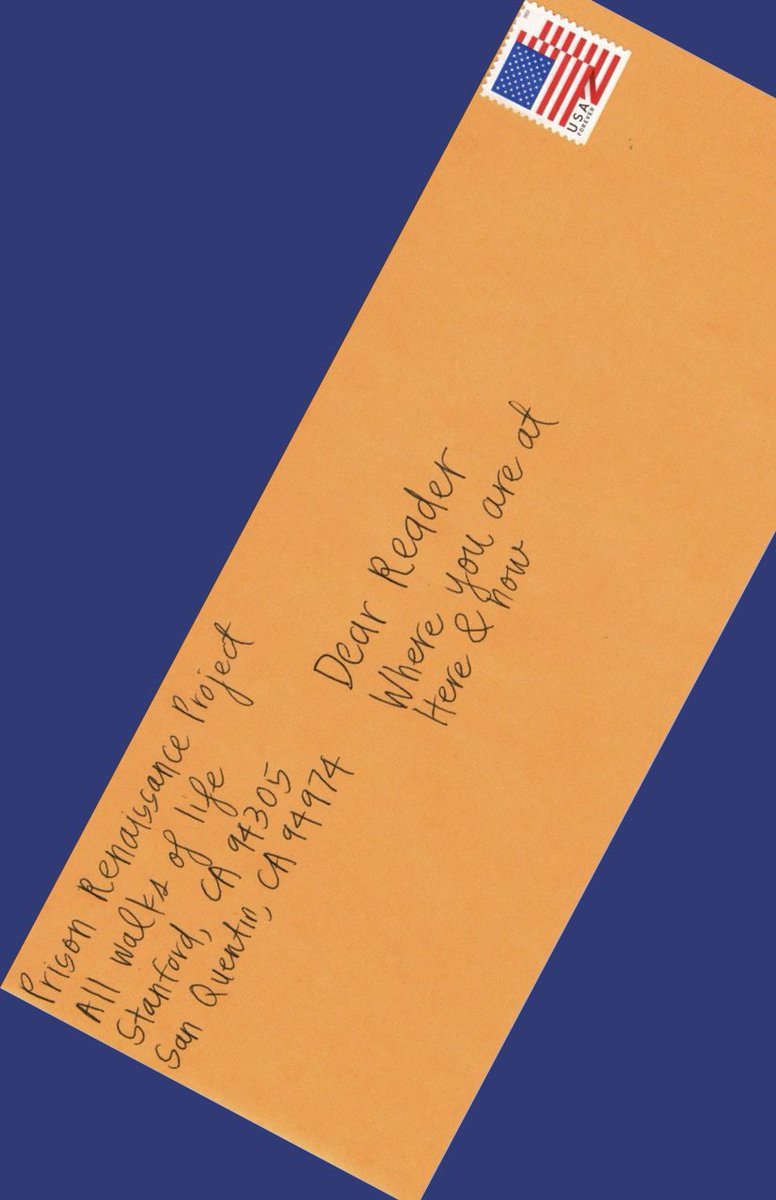 Prison Renaissance Project
All walks of life
Stanford, CA 94305
San Quentin, CA 94974
Dear Reader
Where you are at
Here & now
USA
FOREVER